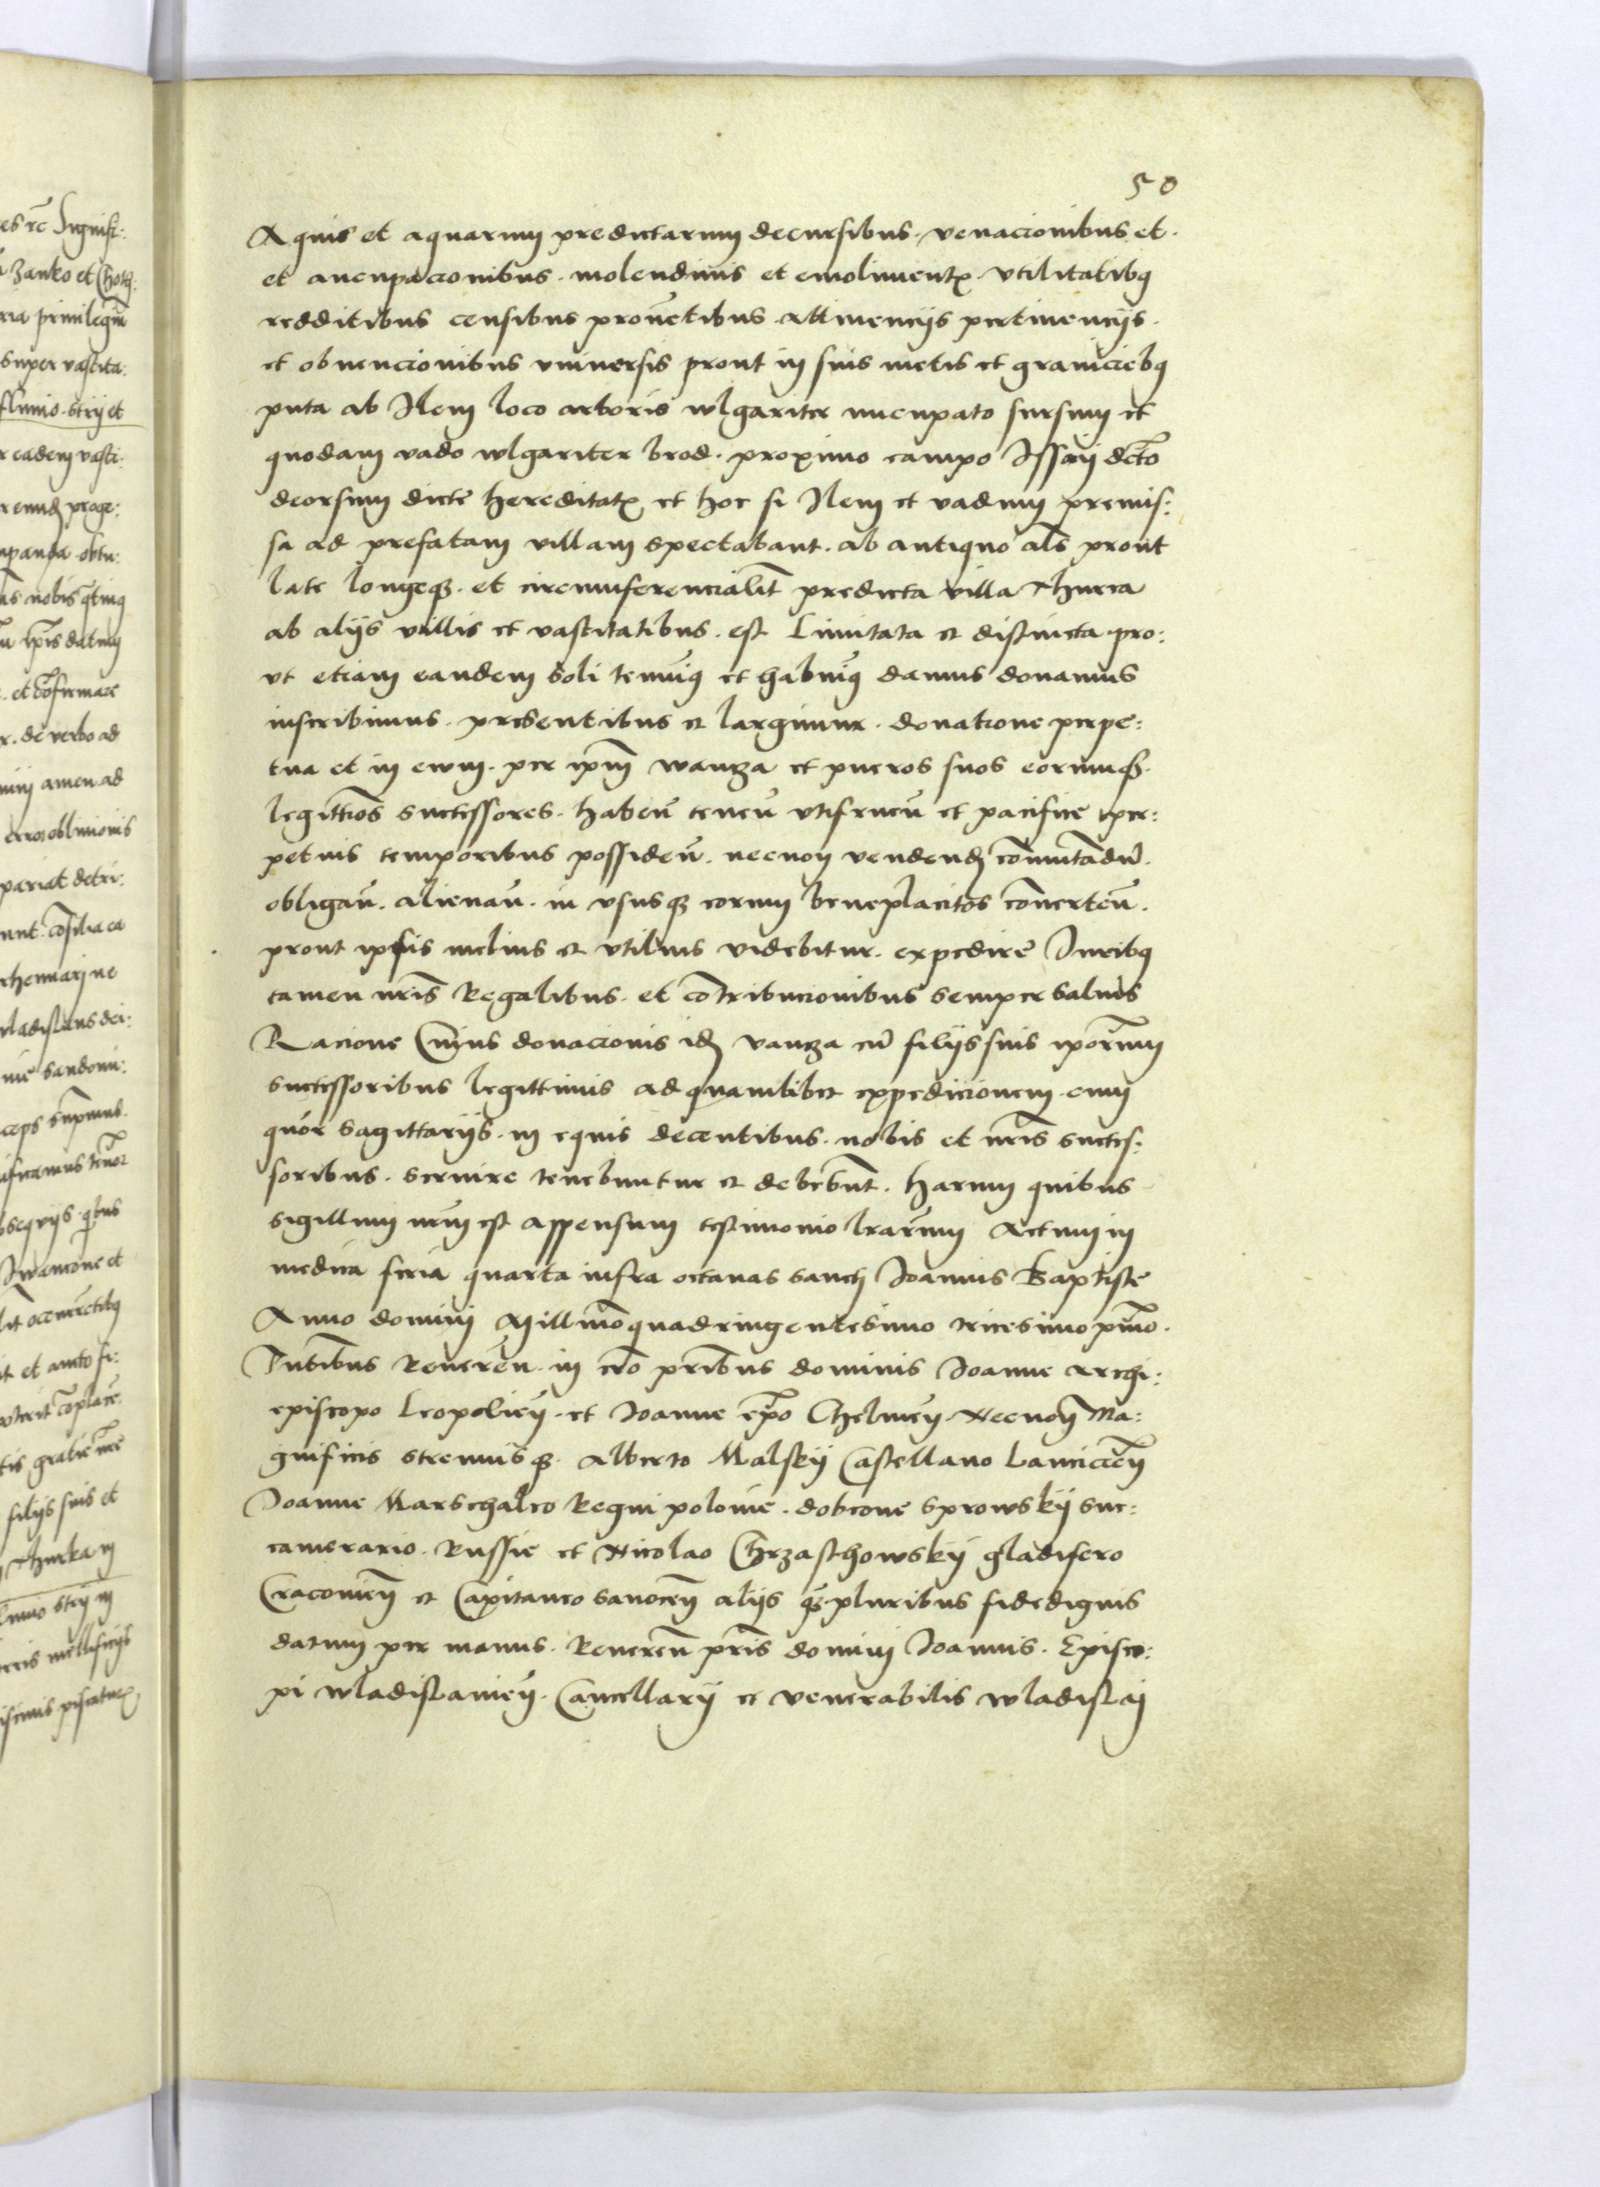 50
Aquis et aquarum predictarum decursibus. venacionibus et.
et aucupacionibus. molendinis et emolimentꝭ. vtilitatibꝫ
redditibus censibus prouētibus attinencijs pertinencijs.
et obuencionibus vniuersis prout in suis metis et graniciebꝫ
puta ab Ilem loco arboris wlgariter nuncupato sursum et
quodam vado wlgariter brod. proximo campo Issaij dcto
deorsum dicte hereditatꝭ et hoc si Ilem et vadum premis:
sa ad prefatam villam spectabant. ab antiquo als prout
late longeqꝫ. et circumferencialit predicta villa Thurca
ab alijs villis et vastitatibus. est Limitata et distincta pro:
vt etiam eandem soli tenuimꝰ et habuimꝰ damus donamus
inscribimus. presentibus et largimur. donatione perpe:
tua et in ewm. per ipm wanza et pueros suos eorumqꝫ.
legittios successores. habeñ teneñ vtifrueñ et pacifice per:
petuis temporibus possideñ. necnon vendend comutādum.
obligañ. alienañ. in vsusqꝫ eorum beneplacitos conuerteñ.
prout ipsis melius et vtilius videbitur. expedire Iuribꝫ
tamen nris Regalibus. et contribucionibus semper saluis
Racione Cuius donacionis idem vanza cum filijs suis ipsorum
successoribus legittimis ad quamlibet expedicionem cum
quatuor sagittarijs. in equis decentibus. nobis et nris succes:
soribus. seruire tenebuntur et debebunt. harum quibus
sigillum nrum est appensum testimonio lrarum Actum in
medica feria quarta infra octauas sancti Joannis Baptiste
Anno domini Millmo quadringentesimo tricesimo pmo.
Pntibus Reueren. in cro pribus dominis Joanne Archi:
episcopo Leopolien. et Joanne epo Chelmen. Necnon Ma:
gnificis strenuisqꝫ. Alberto Malskij Castellano Lancicien
Joanne Marschalco Regni polonie. dobcone sprowskij suc:
camerario. Russie et Nicolao Chrzasthowskij gladifero
Cracouien et Capitaneo sanocen alijs qꝫ pluribus fidedignis
datum per manus. Reueren pris domini Joannis. Episco:
pi wladislauien. Cancellarij et venerabilis wladislaj